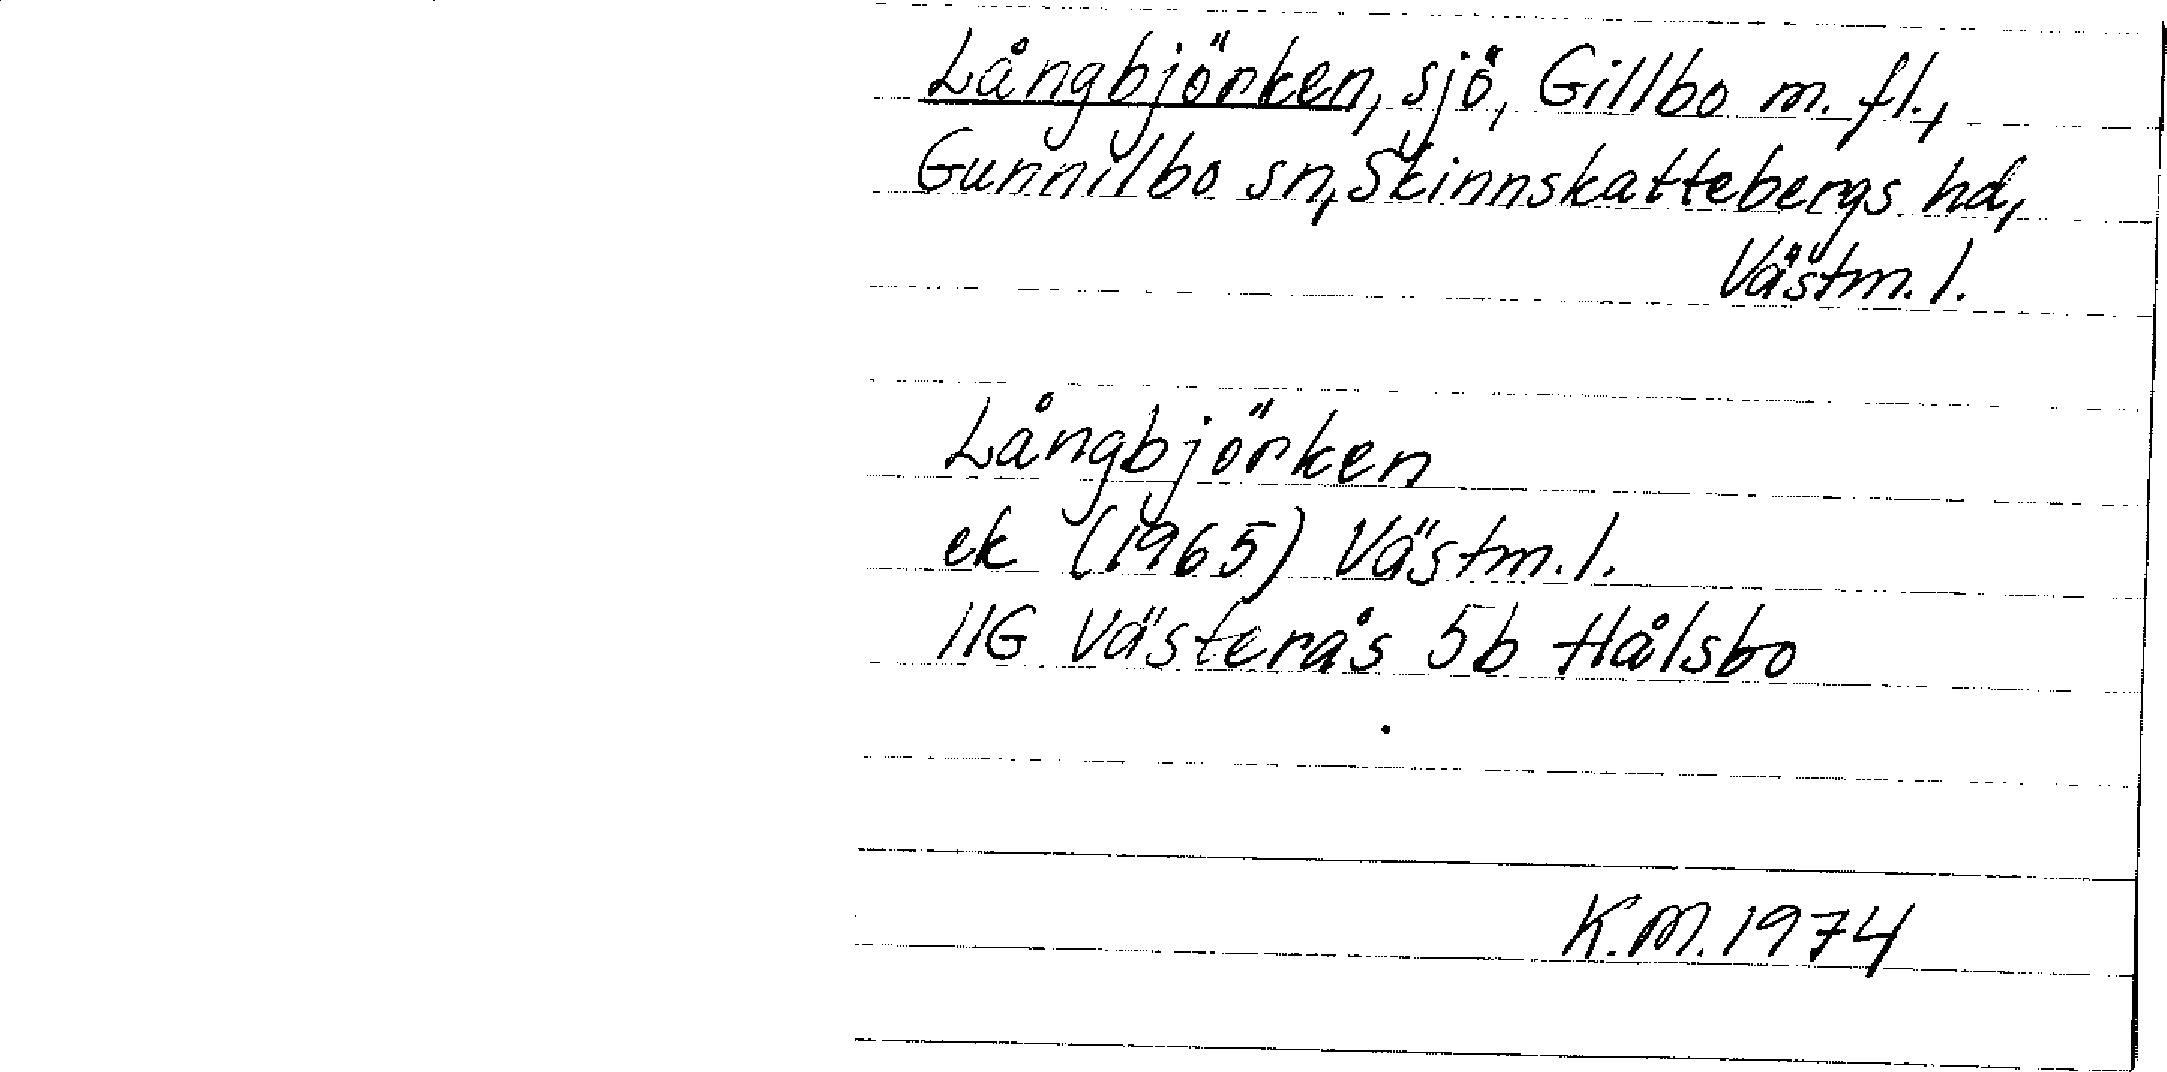 Långbjörken, sjö, Gillbo m. fl.,
Gunnilbo sn, Skinnskattebergs hd,
Västm. l.
Långbjörken
ek (1965) Västm. l.
11G Västerås 5b Hålsbo
K.M. 1974